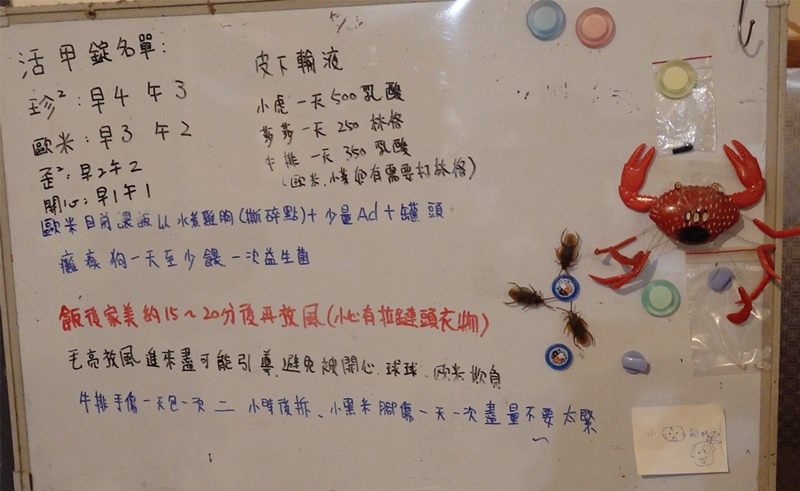 活甲錠名單：
珍²：早4 午3
歐米：早3 午2
歪²：早2午2
開心：早1午1
皮下輸液
小虎 一天500乳酸
莎莎一天 250 林格
牛排 一天 350乳酸
(歐米、小如有需要打林格)
歐米目前濕飯以水煮雞胸(撕碎點)+少量Ad+罐頭
癱瘓狗一天至少餵一次益生菌
飯後家美約15~20分後再放風(小心有拉鏈頭衣物)
毛亮放風進來盡可能引導、避免被開心、球球、歐米欺負
牛排手傷一天包一次 二小時後拆、小黑米腳傷一天一次盡量不要太緊